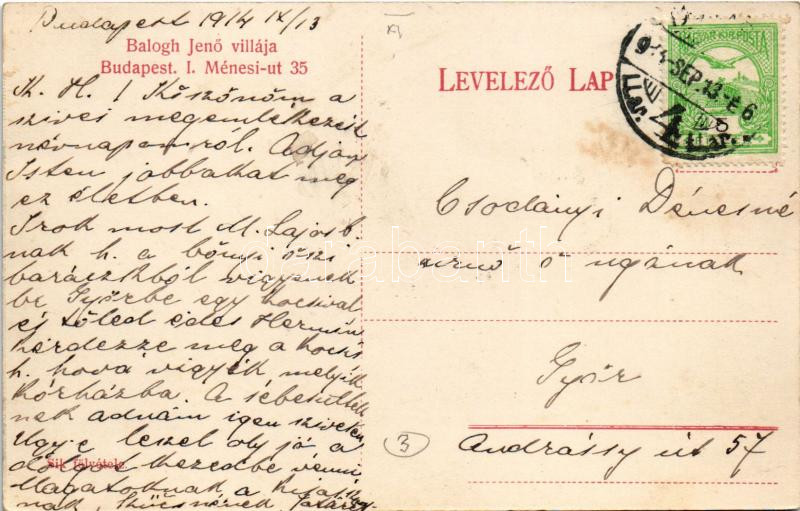 Budapest 1914 IX/13
Balogh Jenő villája
Budapest. I. Ménesi-ut 35
K. H.! Köszönöm a
szives megemlekezést
névnapomról. Adjon
Isten jobbakat még
ez életben.
Irok most M. Lajosb.
nak h. a bőnyi őszi
baráczkból vigyenek
be Győrbe egy kocsival
és tőled édes Hermin
kérdezze meg a kocsis
h. hova vigyék melyik
kórházba. A sebesültek
nek adnám igen szivesen
Ugy-e leszel oly jó a
dolgot kezedbe venni
Magatoknak a
nak,
Sik fölvétele.
LEVELEZŐ LAP
MAGYAR KIR. POSTA
914 SEP. 13
4
Csodányi Dénesné
urnő ő ngának
Győr
Andrássy út 57
3
darabanth